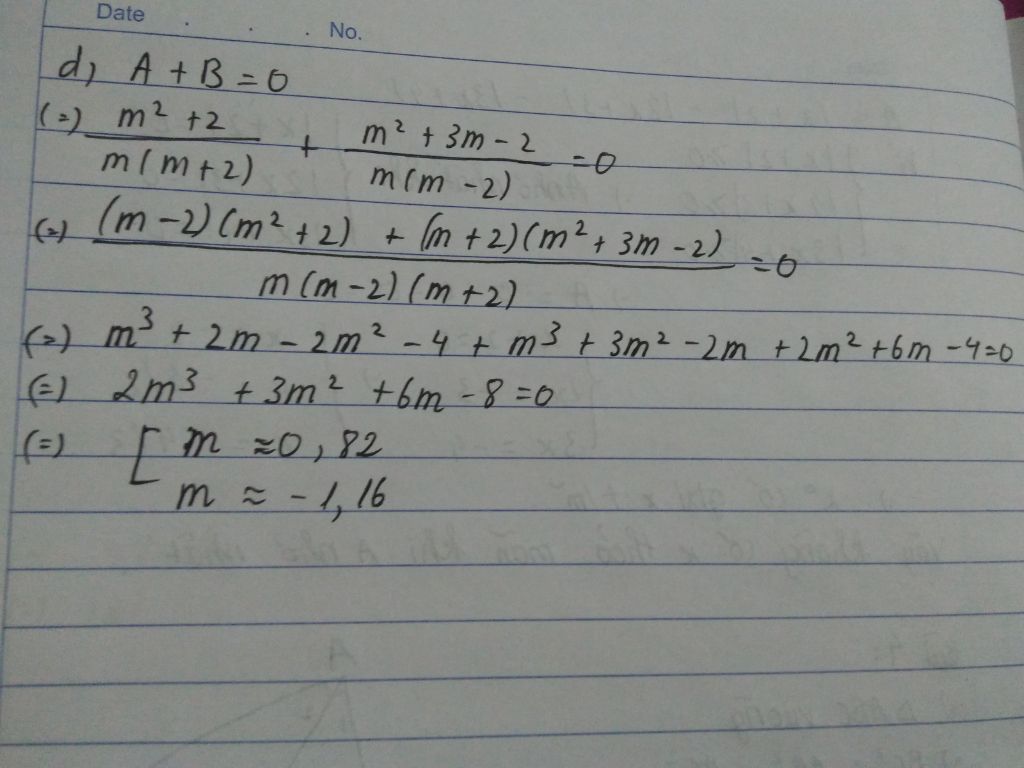 Date . . . No.
d) A + B = 0
(=) m² + 2 / m(m+2) + m² + 3m - 2 / m(m-2) = 0
(=) (m-2)(m²+2) + (m+2)(m²+3m-2) / m(m-2)(m+2) = 0
(=) m³ + 2m - 2m² - 4 + m³ + 3m² - 2m + 2m² + 6m - 4 = 0
(=) 2m³ + 3m² + 6m - 8 = 0
(=) [ m ≈ 0,82
m ≈ -1,16